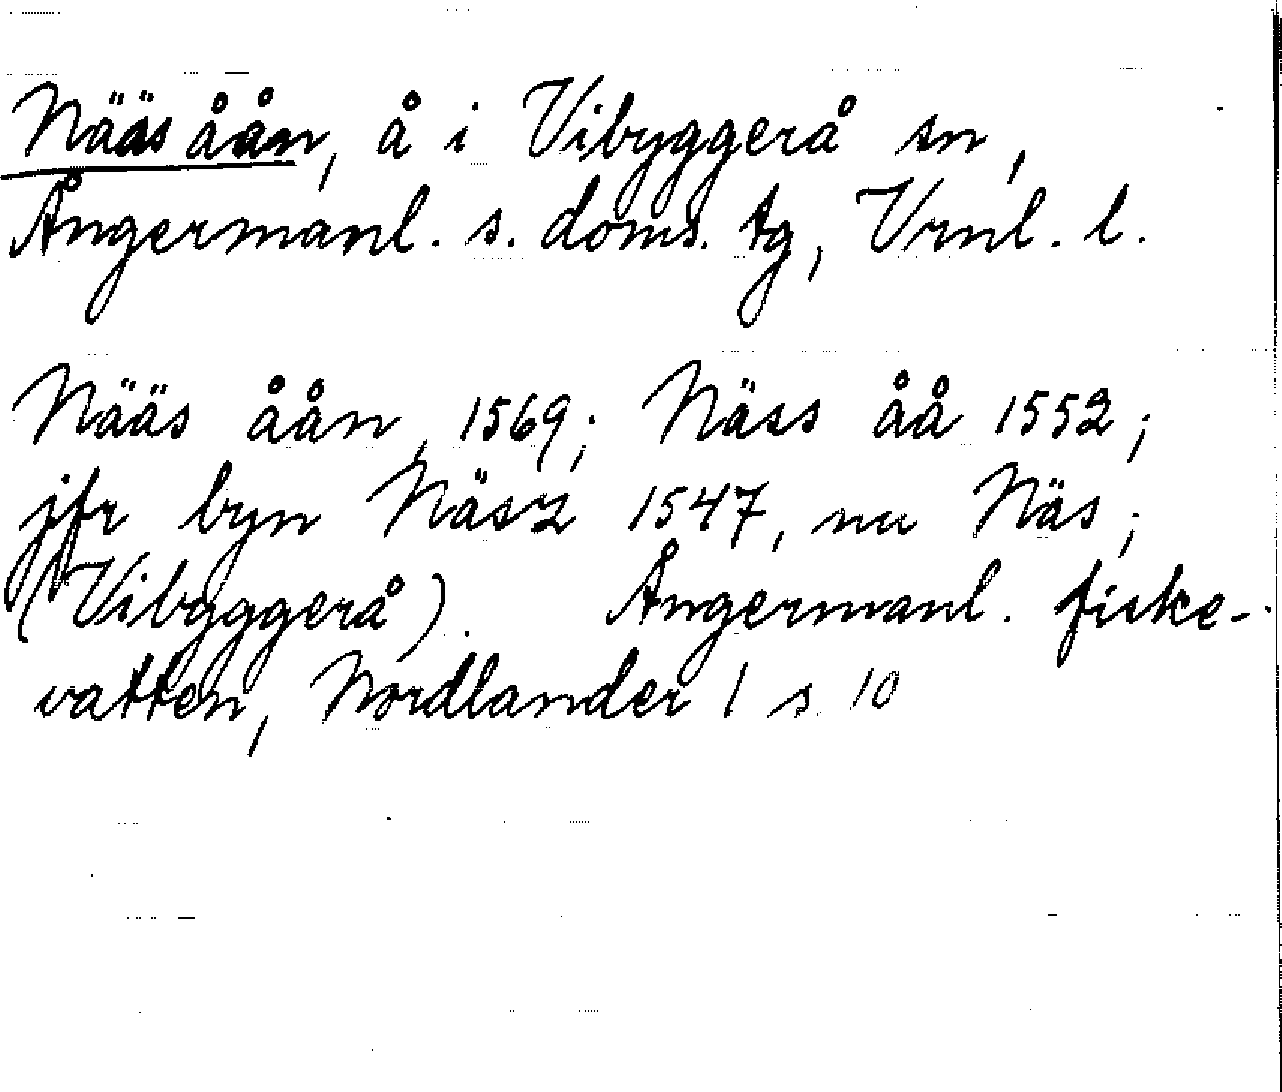 Nääs åån, å i Vibyggerå sn,
Ångermanl. s. doms. tg, Vrnl. l.
Nääs åån, 1569; Näss åå 1552;
jfr byn Näsz 1547, nu Näs;
(Vibyggerå). Ångermanl. fiske-
vatten, Nordlander 1 s. 10